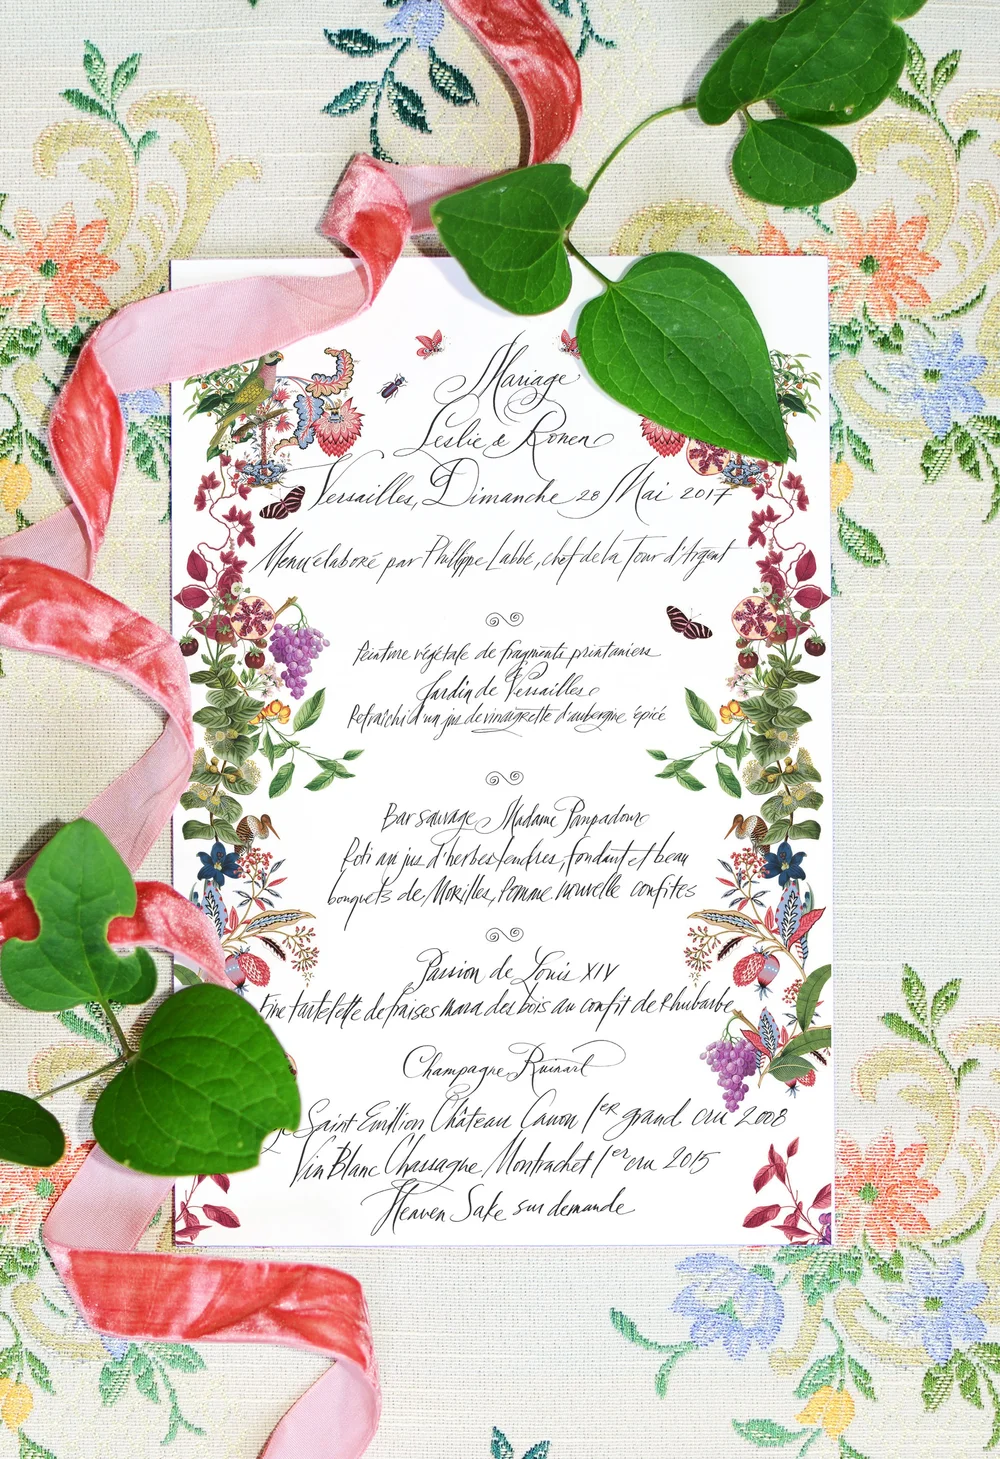 Mariage
Leslie & Ronen
Versailles, Dimanche 28 Mai 2017
Menu élaboré par Philippe Labbé, chef de la Tour d'Argent
Peinture végétale de fragments printaniers
Jardin de Versailles
Rafraîchi d'un jus de vinaigrette d'aubergine épicé
Bar sauvage Madame Pompadour
Roti au jus d'herbes tendres, fondant et beau
bouquets de Morilles, Pomme nouvelle confites
Passion de Louis XIV
Fine tartelette de fraises mara des bois au confit de Rhubarbe
Champagne Ruinart
Saint Emillion Château Canon 1er grand cru 2008
Vin Blanc Chassagne Montrachet 1er cru 2015
Heaven Sake sur demande